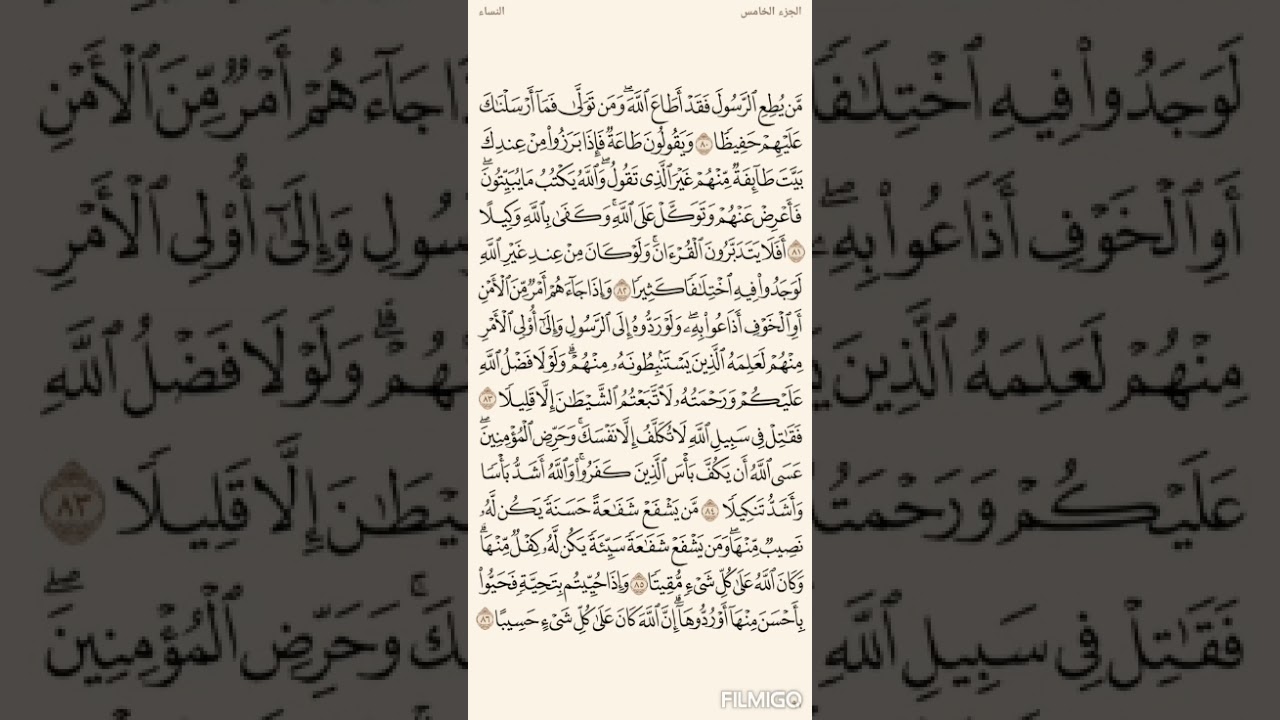 الجزء الخامس
النساء
مَّن يُطِعِ ٱلرَّسُولَ فَقَدْ أَطَاعَ ٱللَّهَۖ وَمَن تَوَلَّىٰ فَمَآ أَرْسَلْنَـٰكَ
عَلَيْهِمْ حَفِيظًا ٨٠ وَيَقُولُونَ طَاعَةٌ فَإِذَا بَرَزُوا۟ مِنْ عِندِكَ
بَيَّتَ طَآئِفَةٌ مِّنْهُمْ غَيْرَ ٱلَّذِى تَقُولُۖ وَٱللَّهُ يَكْتُبُ مَا يُبَيِّتُونَۖ
فَأَعْرِضْ عَنْهُمْ وَتَوَكَّلْ عَلَى ٱللَّهِۚ وَكَفَىٰ بِٱللَّهِ وَكِيلًا
٨١ أَفَلَا يَتَدَبَّرُونَ ٱلْقُرْءَانَۚ وَلَوْ كَانَ مِنْ عِندِ غَيْرِ ٱللَّهِ
لَوَجَدُوا۟ فِيهِ ٱخْتِلَـٰفًا كَثِيرًا ٨٢ وَإِذَا جَآءَهُمْ أَمْرٌ مِّنَ ٱلْأَمْنِ
أَوِ ٱلْخَوْفِ أَذَاعُوا۟ بِهِۦۖ وَلَوْ رَدُّوهُ إِلَى ٱلرَّسُولِ وَإِلَىٰٓ أُو۟لِى ٱلْأَمْرِ
مِنْهُمْ لَعَلِمَهُ ٱلَّذِينَ يَسْتَنۢبِطُونَهُۥ مِنْهُمْۗ وَلَوْلَا فَضْلُ ٱللَّهِ
عَلَيْكُمْ وَرَحْمَتُهُۥ لَٱتَّبَعْتُمُ ٱلشَّيْطَـٰنَ إِلَّا قَلِيلًا ٨٣
فَقَـٰتِلْ فِى سَبِيلِ ٱللَّهِ لَا تُكَلَّفُ إِلَّا نَفْسَكَۚ وَحَرِّضِ ٱلْمُؤْمِنِينَۖ
عَسَى ٱللَّهُ أَن يَكُفَّ بَأْسَ ٱلَّذِينَ كَفَرُوا۟ۚ وَٱللَّهُ أَشَدُّ بَأْسًا
وَأَشَدُّ تَنكِيلًا ٨٤ مَّن يَشْفَعْ شَفَـٰعَةً حَسَنَةً يَكُن لَّهُۥ
نَصِيبٌ مِّنْهَاۖ وَمَن يَشْفَعْ شَفَـٰعَةً سَيِّئَةً يَكُن لَّهُۥ كِفْلٌ مِّنْهَاۗ
وَكَانَ ٱللَّهُ عَلَىٰ كُلِّ شَىْءٍ مُّقِيتًا ٨٥ وَإِذَا حُيِّيتُم بِتَحِيَّةٍ فَحَيُّوا۟
بِأَحْسَنَ مِنْهَآ أَوْ رُدُّوهَآۗ إِنَّ ٱللَّهَ كَانَ عَلَىٰ كُلِّ شَىْءٍ حَسِيبًا ٨٦
FILMIGO